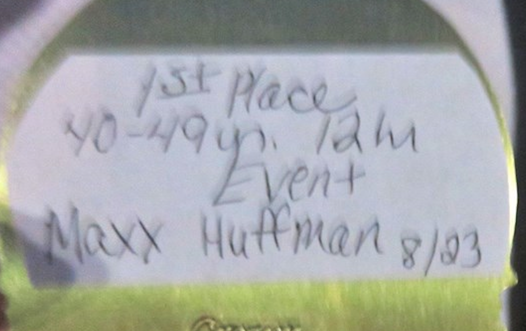 1st Place
40-49 yr. 12 hr
Event
Maxx Huffman 8/23